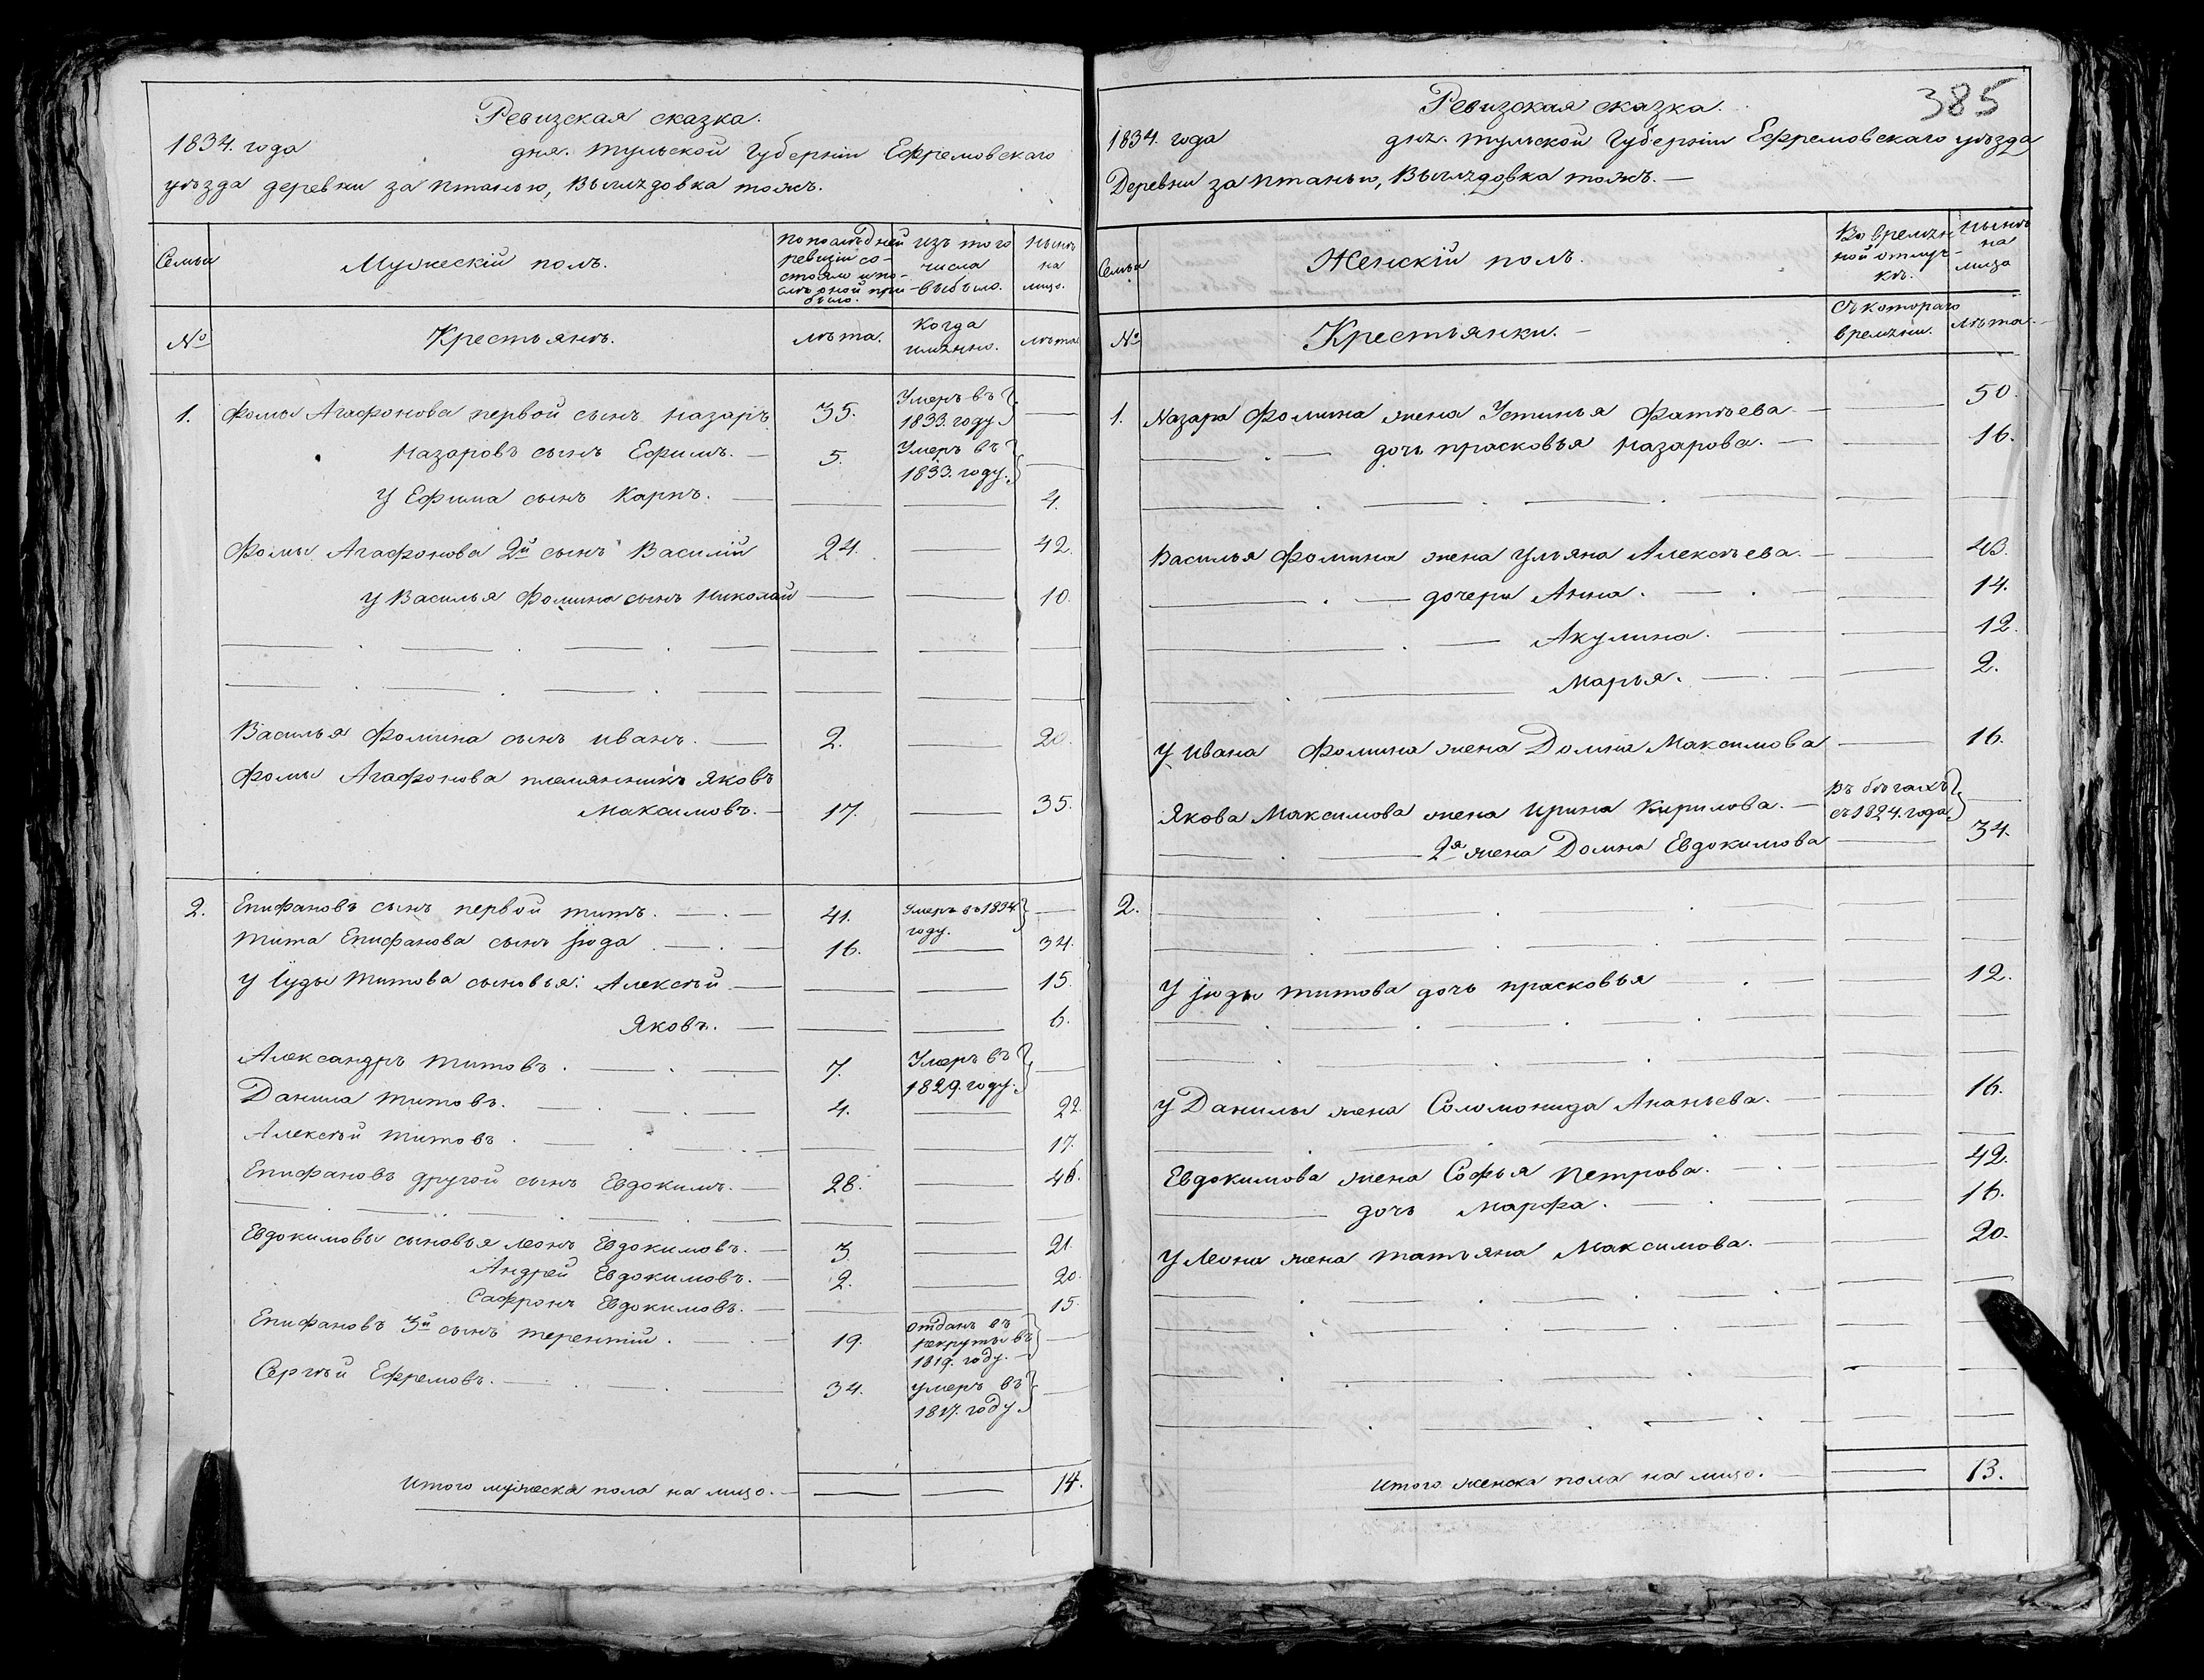 Ревизская сказка.
1834. года дня. Тульской Губернiи Ефремовскаго
уѣзда деревни за Птанью, тожъ.
Семьи
Мужескiй полъ.
По послѣдней ревизiи состояло и послѣ оной прибыло.
Изъ того числа выбыло.
Нынѣ на лицо.
№
Крестьянъ.
Лѣта.
Когда именно.
Лѣта
1. Фомы Агафонова первой сынъ Назаръ 35. Умеръ въ 1833. году
Назаровъ сынъ Ефимъ. 5. Умеръ въ 1833. году.
У Ефима сынъ Карпъ. 4.
Фомы Агафонова 2й сынъ Василiй 24. 42.
У Василья Фомина сынъ Николай 10.
Василья Фомина сынъ Иванъ. 2. 20.
Фомы Агафонова племянникъ Яковъ
Максимовъ. 17. 35.
2. Епифановъ сынъ первой Титъ. 41. Умеръ въ 1834 году.
Тита Епифанова сынъ Iюда. 16. 34.
У Iуды Титова сыновья: Алексѣй 15.
Яковъ. 6.
Александръ Титовъ. 7. Умеръ въ 1829. году.
Данила Титовъ. 4. 22.
Алексѣй Титовъ. 17.
Епифановъ другой сынъ Евдокимъ. 28. 46.
Евдокимовы сыновья Леонъ Евдокимовъ. 3 21.
Андрей Евдокимовъ. 2. 20.
Сафронъ Евдокимовъ. 15.
Епифановъ 3й сынъ Терентiй. 19. отданъ въ рекруты въ 1819. году.
Сергѣй Ефремовъ. 34. умеръ въ 1817. году.
Итого мужеска пола на лицо. 14.
385
Ревизская сказка.
1834. года дня. Тульской Губернiи Ефремовскаго уѣзда
Деревни за Птанью, тожъ.
Семьи
Женскiй полъ.
Во временной отлучкѣ.
Нынѣ на лицо
№
Крестьянки.
Съ котораго времени.
Лѣта.
1. Назара Фомина жена Устинья Фатѣева 50.
дочь Прасковья Назарова. 16.
Василья Фомина жена Ульяна Алексѣева. 43.
дочери Анна. 14.
Акулина. 12.
Марья. 2.
У Ивана Фомина жена Домна Максимова 16.
Якова Максимова жена Ирина Кирилова. въ бѣгахъ съ 1824. года
2я жена Домна Евдокимова 34.
2.
У Iюды Титова дочь Прасковья 12.
У Данилы жена Соломонида Ананьева. 16.
Евдокимова жена Софья Петрова. 42.
дочь Марфа. 16.
У Леона жена Татьяна Максимова. 20.
Итого женска пола на лицо. 13.